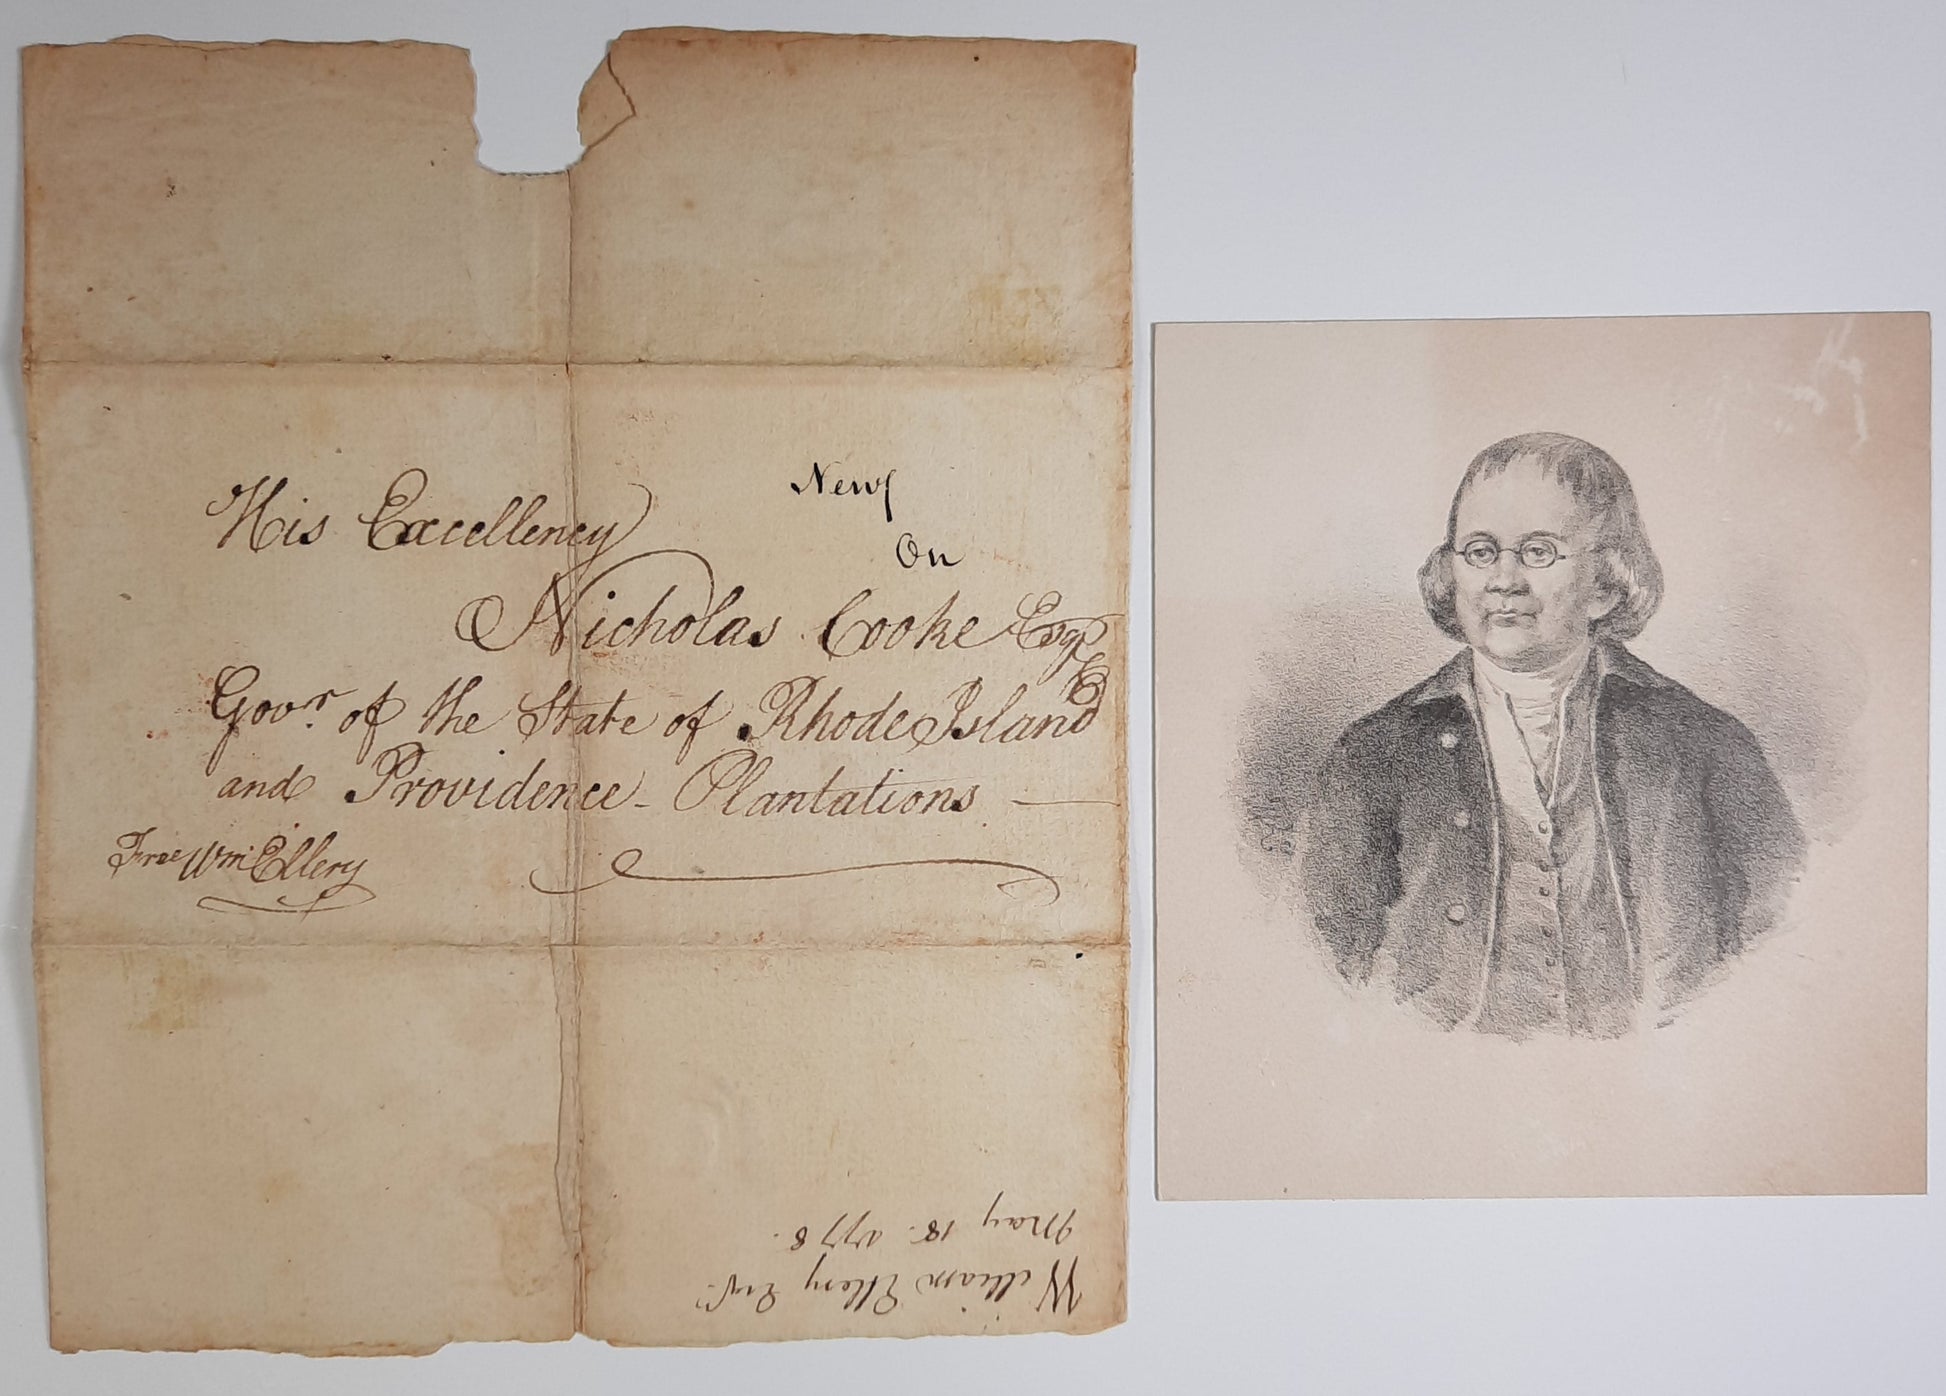 His Excellency
New
On
Nicholas Cooke Esqr
Govr. of the State of Rhode Island
and Providence Plantations
Free Wm Ellery
William Ellery Esqr.
May 18. 1778.